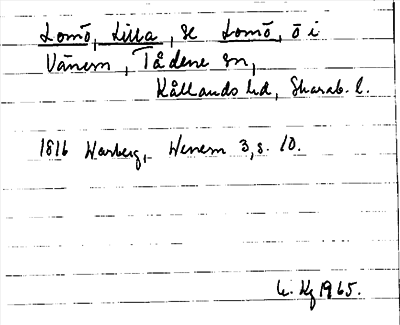 Lomö, Lilla, se Lomö, ö i
Vänern, Tådene sn,
Kållands hd, Skarab. l.
1816 Warberg, Wenern 3, s. 10.
1965.